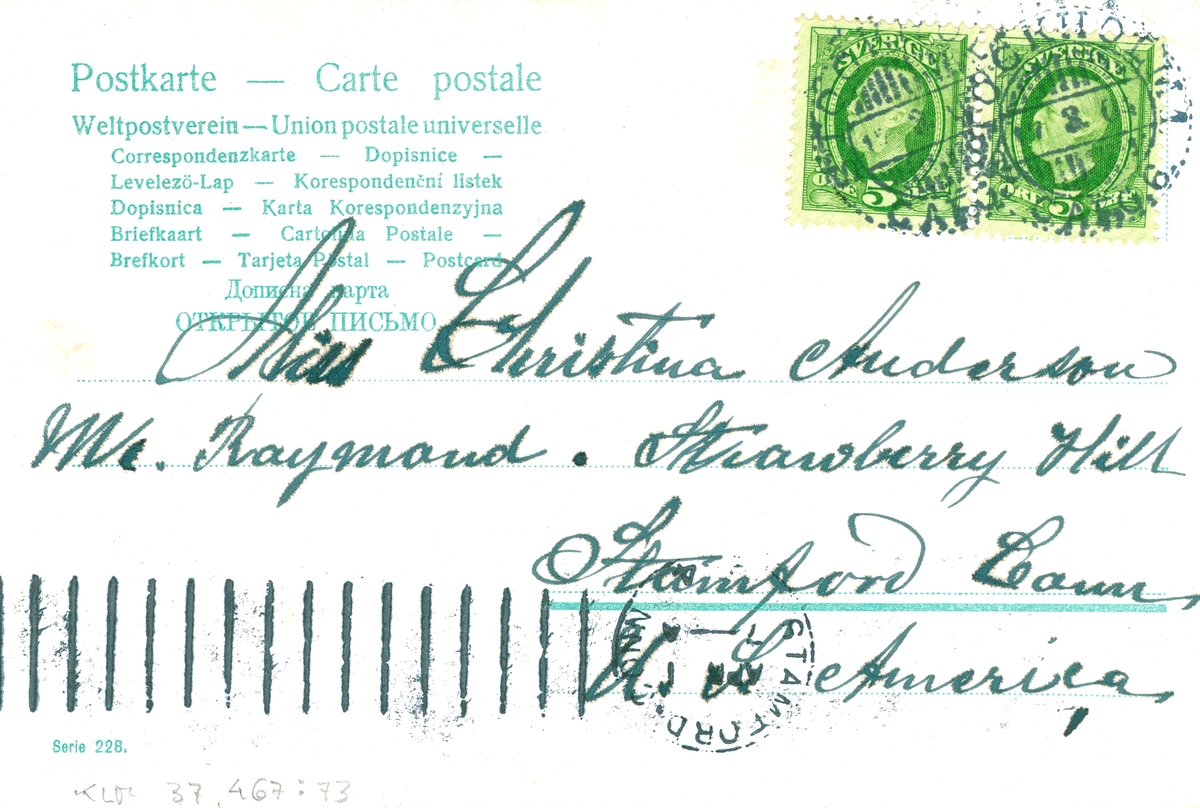 Postkarte — Carte postale
Weltpostverein — Union postale universelle
Correspondenzkarte — Dopisnice —
Levelezö-Lap — Korespondenční listek
Dopisnica — Karta Korespondenzyjna
Briefkaart — Cartolina Postale —
Brefkort — Tarjeta Postal — Postcard
Дописна карта
ОТКРЫТОЕ ПИСЬМО
SVERIGE SVERIGE
5 5
Miss Christina Anderson
Mr. Raymond. Strawberry Hill
Stamford Conn
N. A. America,
STAMFORD
CONN.
Serie 228.
37.467:73